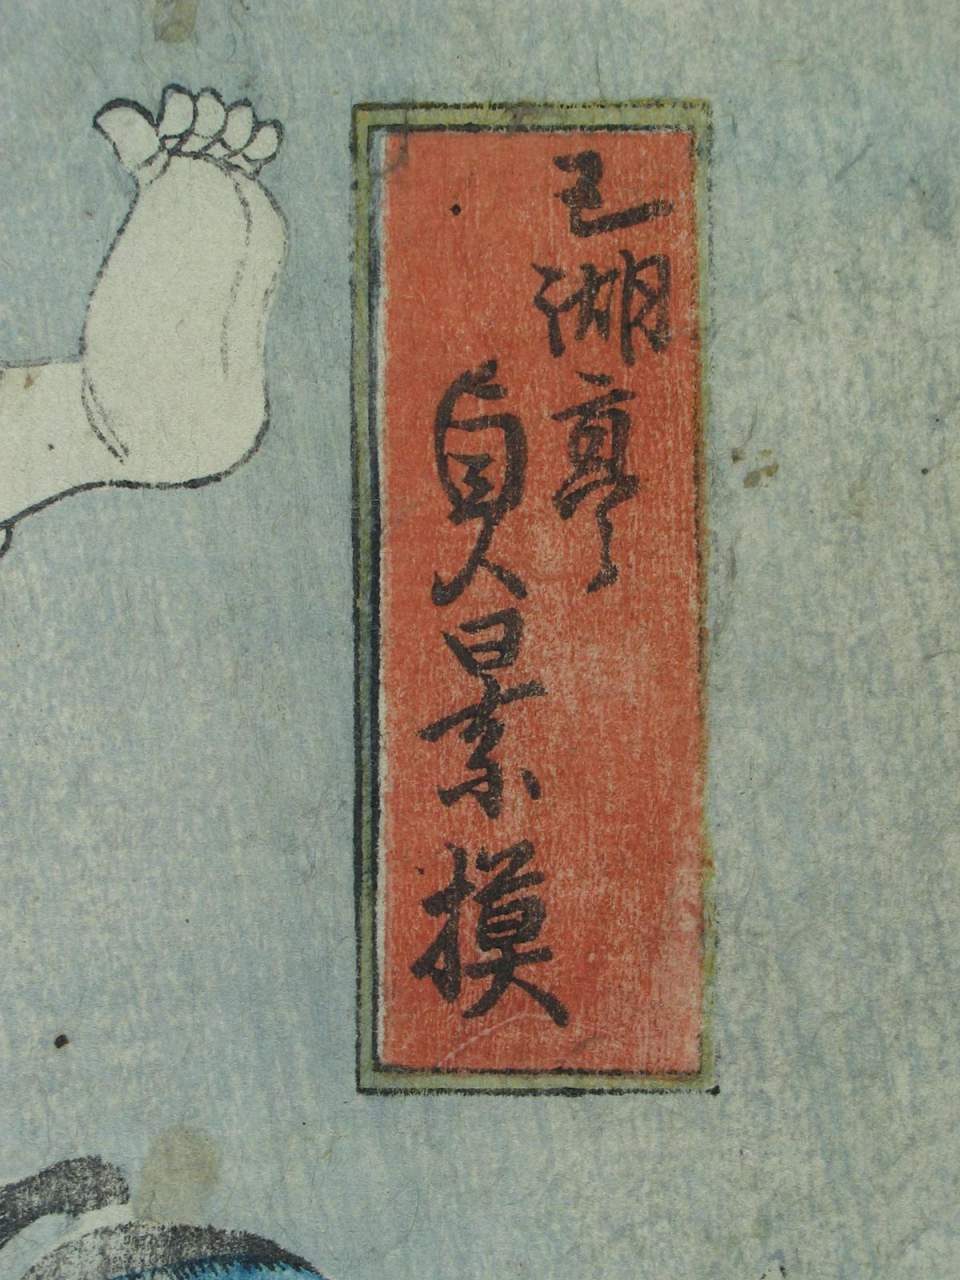 五湖亭
貞景摸